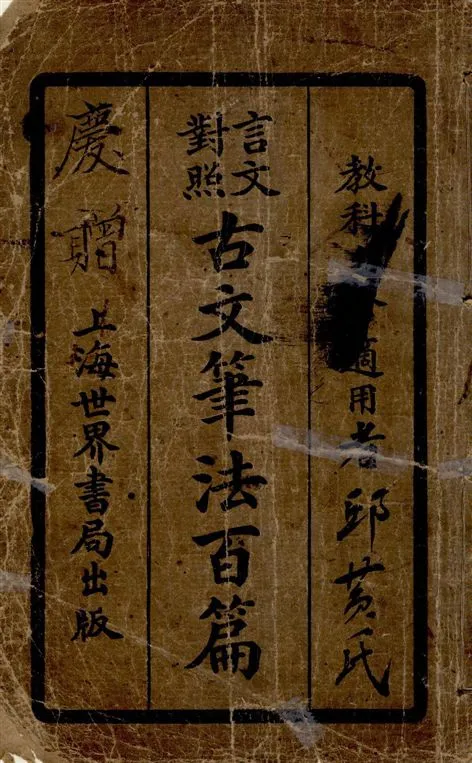 教科適用者邱黃氏
言文對照
古文筆法百篇
慶贈
上海世界書局出版